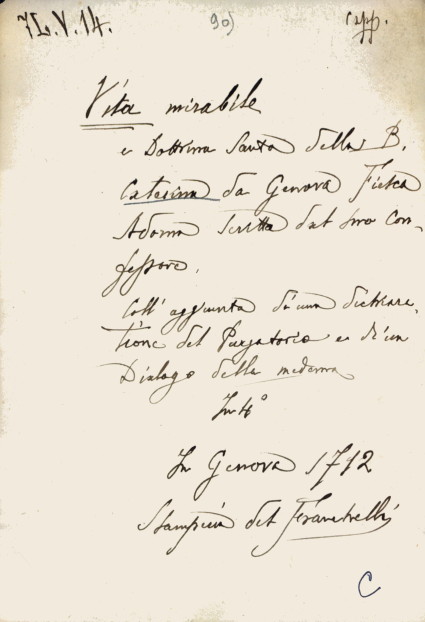 7L.V.14. 90) Capp.
Vita mirabile
e Dottrina Santa della B.
Caterina da Genova Fiesca
Adorna Scritta dal suo Con-
fessore.
Coll' aggiunta di una dichiara-
tione del Purgatorio e di un
Dialogo della medema
In 4°
In Genova 1712
Stamperia del Franchelli
C